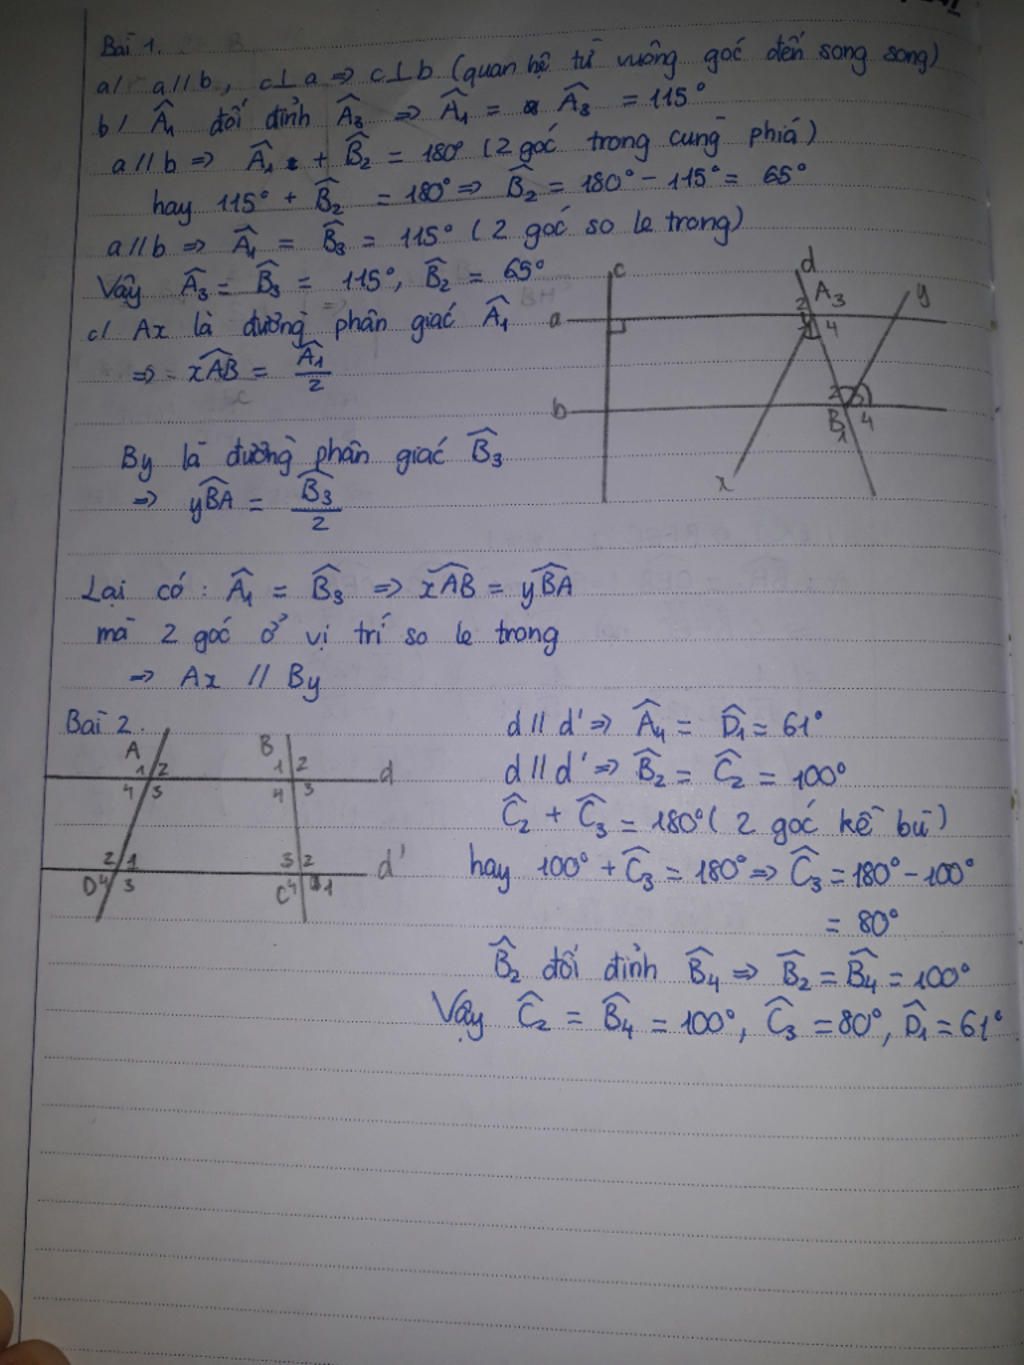 Bài 1.
a/ a // b, c ⊥ a ⇒ c ⊥ b (quan hệ từ vuông góc đến song song)
b/ Â₁ đối đỉnh Â₃ ⇒ Â₁ = Â₃ = 115°
a // b ⇒ Â₁ + B̂₂ = 180° (2 góc trong cùng phía)
hay 115° + B̂₂ = 180° ⇒ B̂₂ = 180° - 115° = 65°
a // b ⇒ Â₁ = B̂₃ = 115° (2 góc so le trong)
Vậy Â₃ = B̂₃ = 115°, B̂₂ = 65°
c/ Ax là đường phân giác Â₁
⇒ xÂB = Â₁/2
By là đường phân giác B̂₃
⇒ yB̂A = B̂₃/2
c
d
A 3
2
4
y
a
b
2 3
B
1
4
x
Lại có: Â₁ = B̂₃ ⇒ xÂB = yB̂A
mà 2 góc ở vị trí so le trong
⇒ Ax // By
Bài 2.
A
1 2
4 3
B
1 2
4 3
d
2 1
D 4 3
3 2
C 4 1
d'
d // d' ⇒ Â₄ = D̂₁ = 61°
d // d' ⇒ B̂₂ = Ĉ₂ = 100°
Ĉ₂ + Ĉ₃ = 180° (2 góc kề bù)
hay 100° + Ĉ₃ = 180° ⇒ Ĉ₃ = 180° - 100°
= 80°
B̂₂ đối đỉnh B̂₄ ⇒ B̂₂ = B̂₄ = 100°
Vậy Ĉ₂ = B̂₄ = 100°, Ĉ₃ = 80°, D̂₁ = 61°